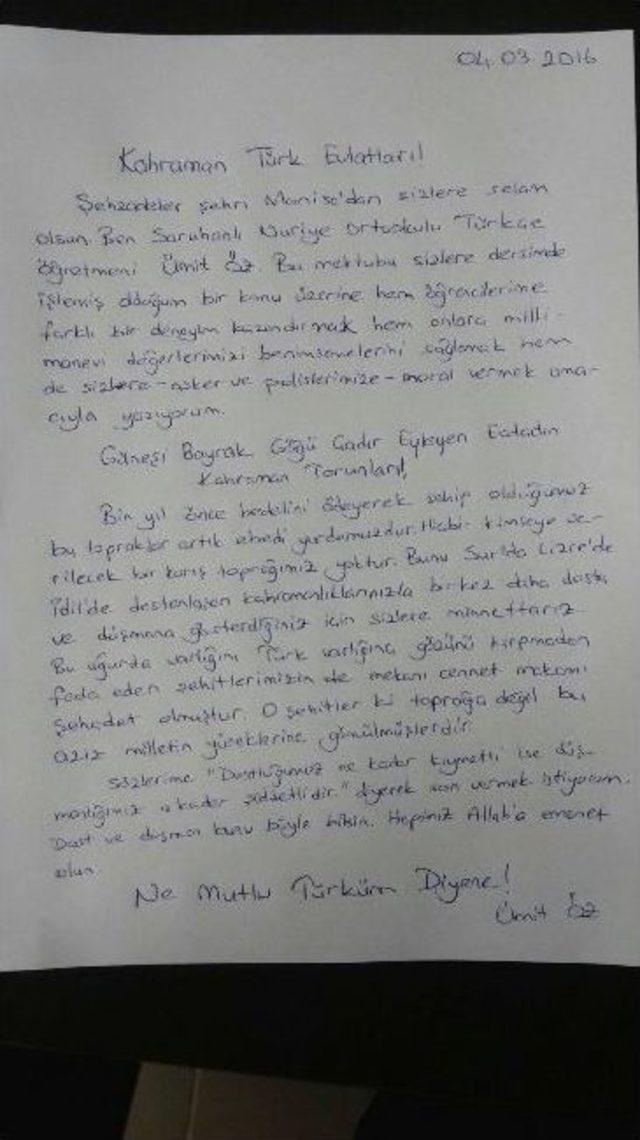 04.03.2016
Kahraman Türk Evlatları!
Şehzadeler şehri Manisa'dan sizlere selam
olsun. Ben Saruhanlı Nuriye Ortaokulu Türkçe
öğretmeni Ümit Öz. Bu mektubu sizlere dersimde
işlemiş olduğum bir konu üzerine hem öğrencilerime
farklı bir deneyim kazandırmak hem onlara milli-
manevi değerlerimizi benimsemelerini sağlamak hem
de sizlere - asker ve polislerimize - moral vermek ama-
cıyla yazıyorum.
Güneşi Bayrak, Göğü Çadır Eyleyen Ecdadın
Kahraman Torunları!
Bin yıl önce bedelini ödeyerek sahip olduğumuz
bu topraklar artık ebedi yurdumuzdur. Hiçbir kimseye ve-
rilecek bir karış toprağımız yoktur. Bunu Sur'da Cizre'de
İdil'de destanlaşan kahramanlıklarınızla bir kez daha dosta
ve düşmana gösterdiğiniz için sizlere minnettarız.
Bu uğurda varlığını Türk varlığına gözünü kırpmadan
feda eden şehitlerimizin de mekanı cennet makamı
şehadet olmuştur. O şehitler ki toprağa değil bu
aziz milletin yüreklerine gömülmüşlerdir.
Sözlerime "Dostluğumuz ne kadar kıymetli ise düş-
manlığımız o kadar şiddetlidir." diyerek son vermek istiyorum.
Dost ve düşman bunu böyle bilsin. Hepiniz Allah'a emanet
olun.
Ne Mutlu Türküm Diyene!
Ümit Öz